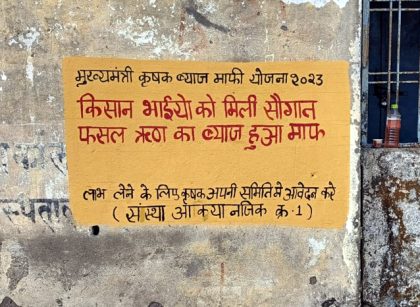 मुख्यमंत्री कृषक ब्याज माफी योजना २०२३
किसान भाईयो को मिली सौगात
फसल ऋण का ब्याज हुआ माफ
लाभ लेने के लिए कृषक अपनी समिति मे आवेदन करे
( संस्था आ क्या नजिक क्र. 1 )